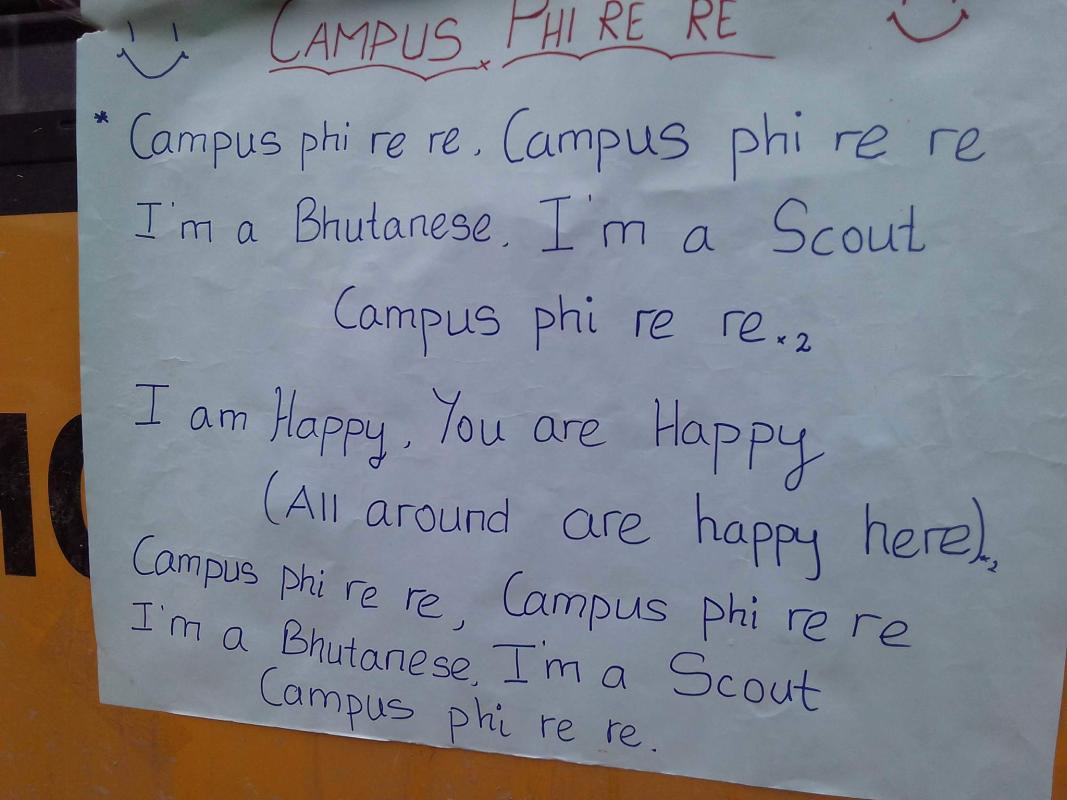 CAMPUS PHI RE RE
* Campus phi re re. Campus phi re re
I'm a Bhutanese. I'm a Scout
Campus phi re re. x 2
I am Happy, You are Happy
(All around are happy here) x 2
Campus phi re re, Campus phi re re
I'm a Bhutanese, I'm a Scout
Campus phi re re.